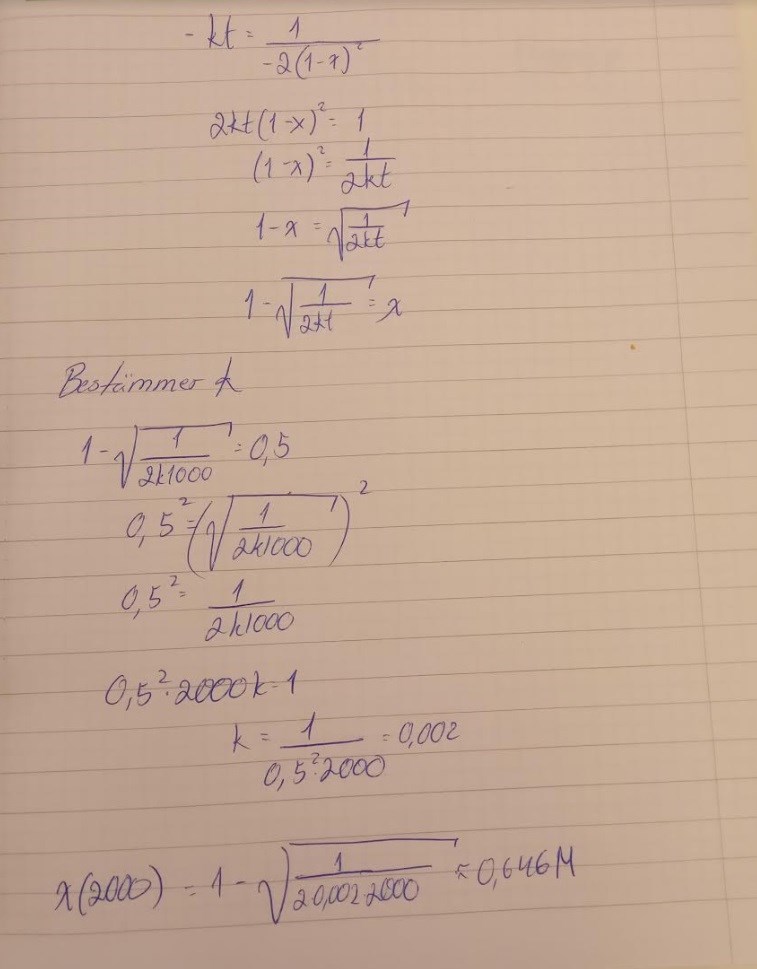 -kt = 1/(-2(1-x)²)
2kt(1-x)² = 1
(1-x)² = 1/(2kt)
1-x = √(1/(2kt))
1-√(1/(2kt)) = x
Bestämmer k
1-√(1/(2k1000)) = 0,5
0,5² = (√(1/(2k1000)))²
0,5² = 1/(2k1000)
0,5²·2000k = 1
k = 1/(0,5²·2000) = 0,002
x(2000) = 1-√(1/(2·0,002·2000)) ≈ 0,646M